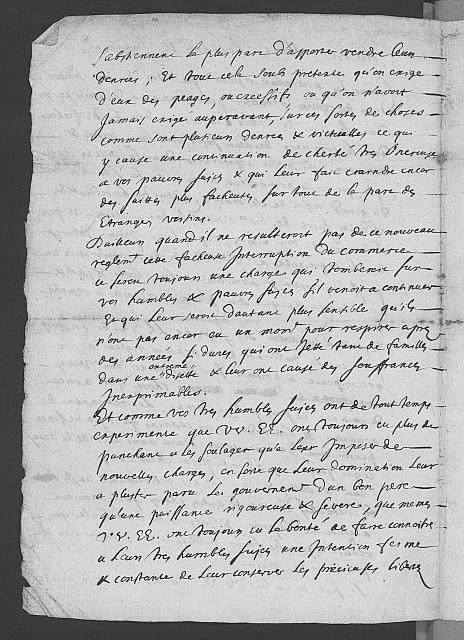 s'abstiennent la plus part d'apporter vendre leurs
denrees; Et tout cela soubs pretexte qu'on exige
d'eux des peages, ou excessifs ou qu'on n'avoit
Jamais exigé auparavant, sur ces sortes de choses
comme sont plusieurs denrees & victuailles ce qui
y cause une continuation de cherté tres Onereuse
a vos pauvres sujets & qui leur fait craindre encor
des suittes plus facheuses sur tout de la part des
Etrangers voisins.
D'ailleurs quand il ne resulteroit pas de ce nouveau
reglemt cette facheuse Interruption du commerce
ce seroit toujours une charge qui tomberoit sur
vos humbles & pauvres sujets s'il venoit a continuer
Et qui leur seroit d'autant plus sensible qu'ils
n'ont pas encor eu un momt pour respirer apres
des années si dures qui ont jetté tant de familles
dans une extreme disette & leur ont causé des souffrances
Inexprimables.
Et comme vos tres humbles sujets ont de tout temps
experimenté que VV. EE. ont toujours eu plus de
panchant a les soulager qu'a leur Imposer de
nouvelles charges, en sorte que leur domination leur
a plustot paru le gouvernemt d'un bon pere
qu'une puissance rigoureuse & severe, que memes
VV. EE. ont toujours eu la bonté de faire connoitre
a leurs tres humbles sujets une Intention ferme
& constante de leur conserver les précieuses libertez